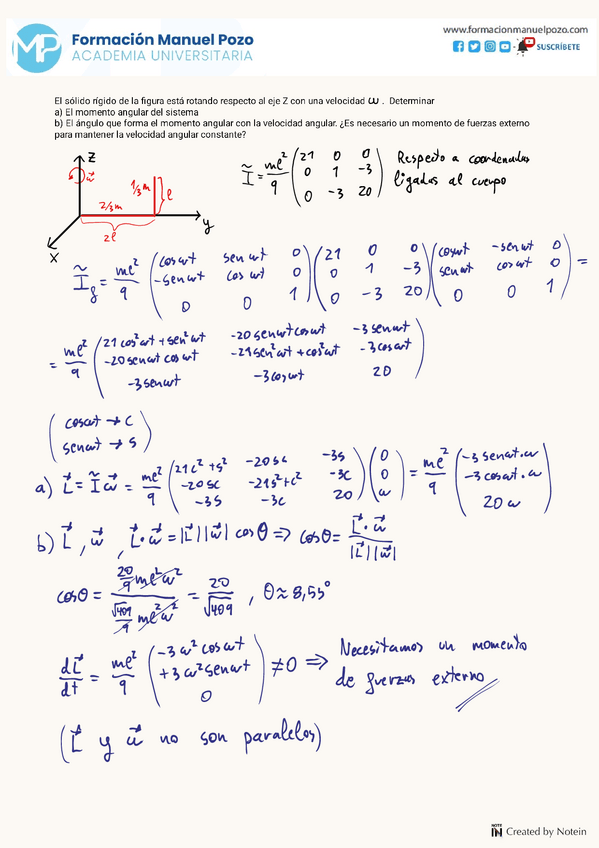 MP Formación Manuel Pozo
ACADEMIA UNIVERSITARIA
www.formacionmanuelpozo.com
SUSCRÍBETE
El sólido rígido de la figura está rotando respecto al eje Z con una velocidad ω . Determinar
a) El momento angular del sistema
b) El ángulo que forma el momento angular con la velocidad angular. ¿Es necesario un momento de fuerzas externo
para mantener la velocidad angular constante?
z ω⃗ 1/3 m l 2/3 m 2l y x
Ĩ = ml²/9 (21 0 0; 0 1 -3; 0 -3 20) Respecto a coordenadas
ligadas al cuerpo
Ĩg = ml²/9 (cosωt senωt 0; -senωt cosωt 0; 0 0 1) (21 0 0; 0 1 -3; 0 -3 20) (cosωt -senωt 0; senωt cosωt 0; 0 0 1) =
= ml²/9 (21cos²ωt + sen²ωt -20senωtcosωt -3senωt; -20senωtcosωt -21sen²ωt + cos²ωt -3cosωt; -3senωt -3cosωt 20)
(cosωt → c
senωt → s)
a) L⃗ = Ĩ ω⃗ = ml²/9 (21c² + s² -20sc -3s; -20sc -21s² + c² -3c; -3s -3c 20) (0; 0; ω) = ml²/9 (-3senωt·ω; -3cosωt·ω; 20ω)
b) L⃗ , ω⃗ , L⃗·ω⃗ = |L⃗||ω⃗| cosθ ⇒ cosθ = L⃗·ω⃗ / |L⃗||ω⃗|
cosθ = (20/9 ml²ω²) / (√409/9 ml²ω²) = 20/√409 , θ ≈ 8,55°
dL⃗/dt = ml²/9 (-3ω²cosωt; +3ω²senωt; 0) ≠ 0 ⇒ Necesitamos un momento
de fuerzas externo
(L⃗ y ω⃗ no son paralelos)
NOTE IN Created by Notein